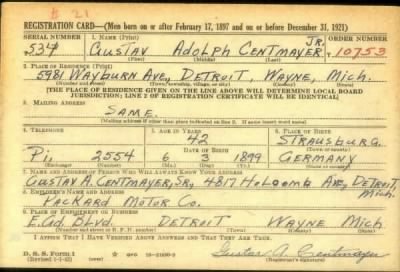 # 21
REGISTRATION CARD—(Men born on or after February 17, 1897 and on or before December 31, 1921)
SERIAL NUMBER 1. NAME (Print) ORDER NUMBER
534 GUSTAV ADOLPH CENTMAYER JR. 10753
(First) (Middle) (Last)
2. PLACE OF RESIDENCE (Print)
5981 WAYBURN AVE, DETROIT, WAYNE, MICH.
(Number and street) (Town, township, village, or city) (County) (State)
[THE PLACE OF RESIDENCE GIVEN ON THE LINE ABOVE WILL DETERMINE LOCAL BOARD
JURISDICTION; LINE 2 OF REGISTRATION CERTIFICATE WILL BE IDENTICAL]
3. MAILING ADDRESS
SAME.
[Mailing address if other than place indicated on line 2. If same insert word same]
4. TELEPHONE 5. AGE IN YEARS 6. PLACE OF BIRTH
42 STRAUSBURG.
DATE OF BIRTH (Town or county)
PI. 2554 6 3 1899 GERMANY
(Exchange) (Number) (Mo.) (Day) (Yr.) (State or country)
7. NAME AND ADDRESS OF PERSON WHO WILL ALWAYS KNOW YOUR ADDRESS
GUSTAV A. CENTMAYER, SR, 4817 HOLCOMB AVE, DETROIT, MICH.
8. EMPLOYER'S NAME AND ADDRESS
PACKARD MOTOR CO.
9. PLACE OF EMPLOYMENT OR BUSINESS
E. GD. BLVD. DETROIT WAYNE MICH
(Number and street or R. F. D. number) (Town) (County) (State)
I AFFIRM THAT I HAVE VERIFIED ABOVE ANSWERS AND THAT THEY ARE TRUE.
D. S. S. Form 1
(Revised 1-1-42) GPO 16—21630-2 Gustav A. Centmayer